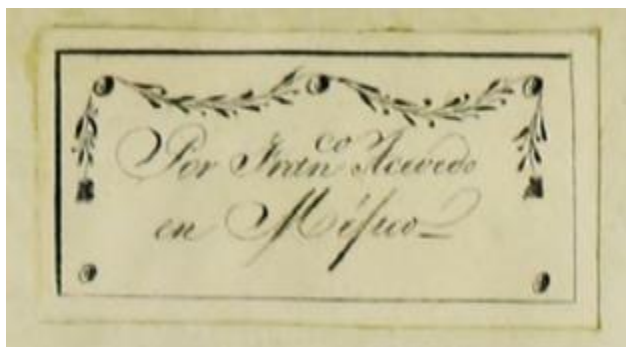 Por Fran.co Acevedo
en Méjico